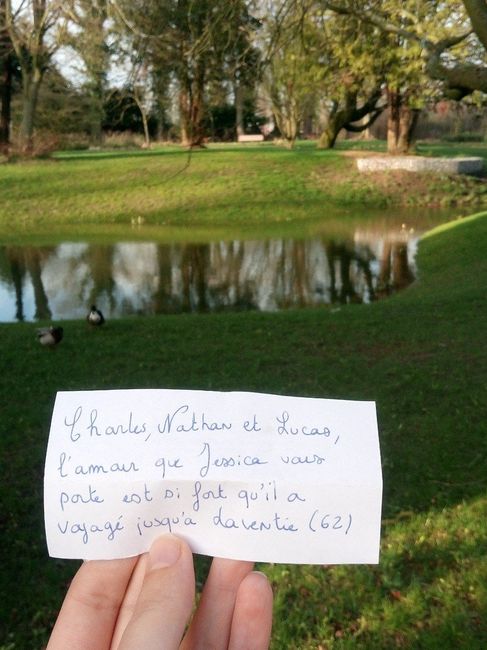 Charles, Nathan et Lucas,
l'amour que Jessica vous
porte est si fort qu'il a
voyagé jusqu'à Laventie (62)